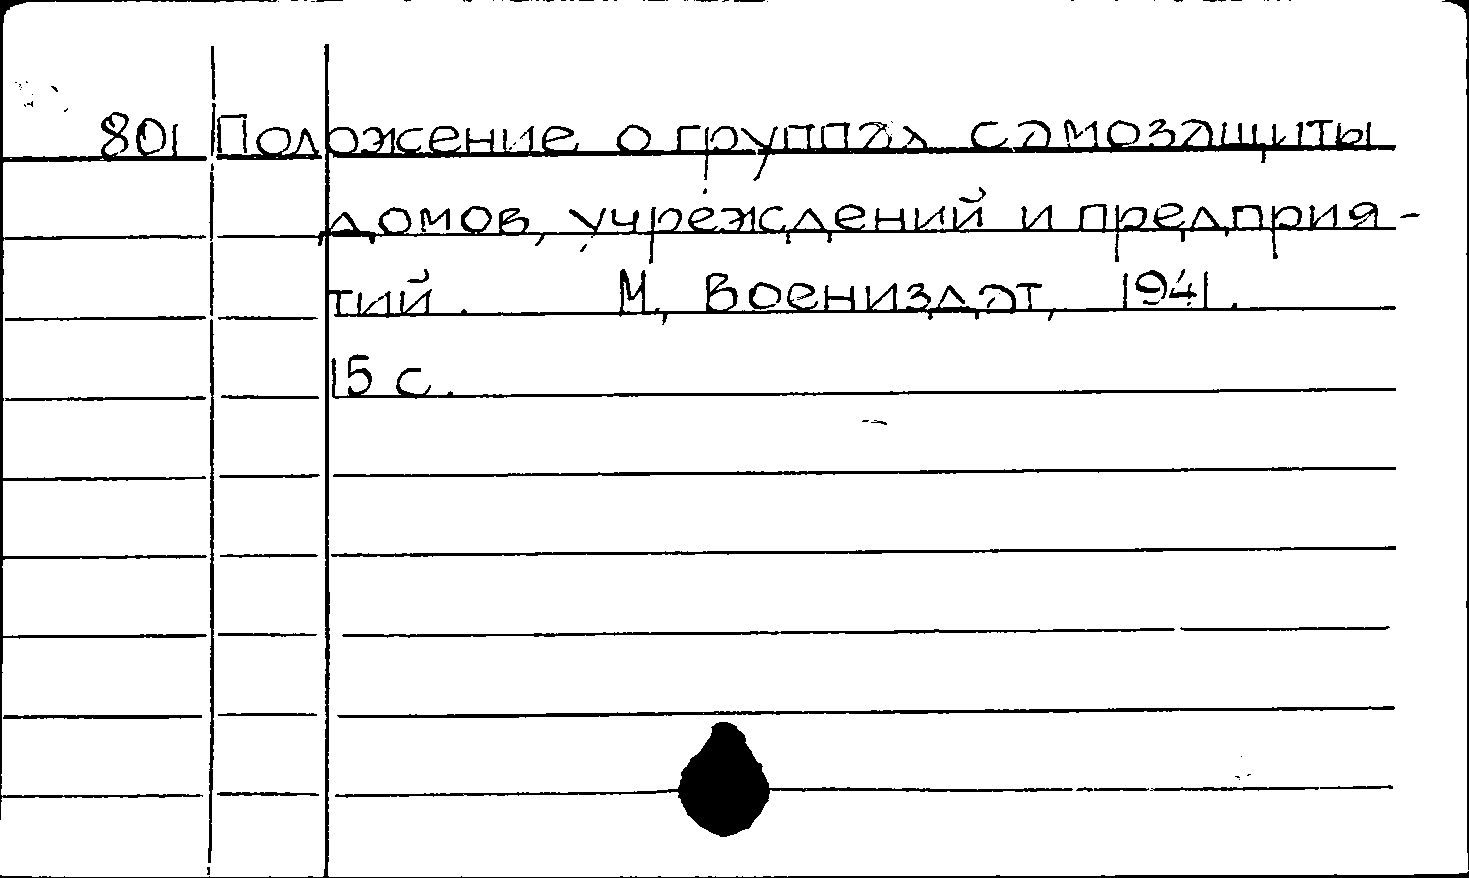 801 Положение о группах самозащиты
домов, учреждений и предприя-
тий. М., Воениздат, 1941.
15 с.